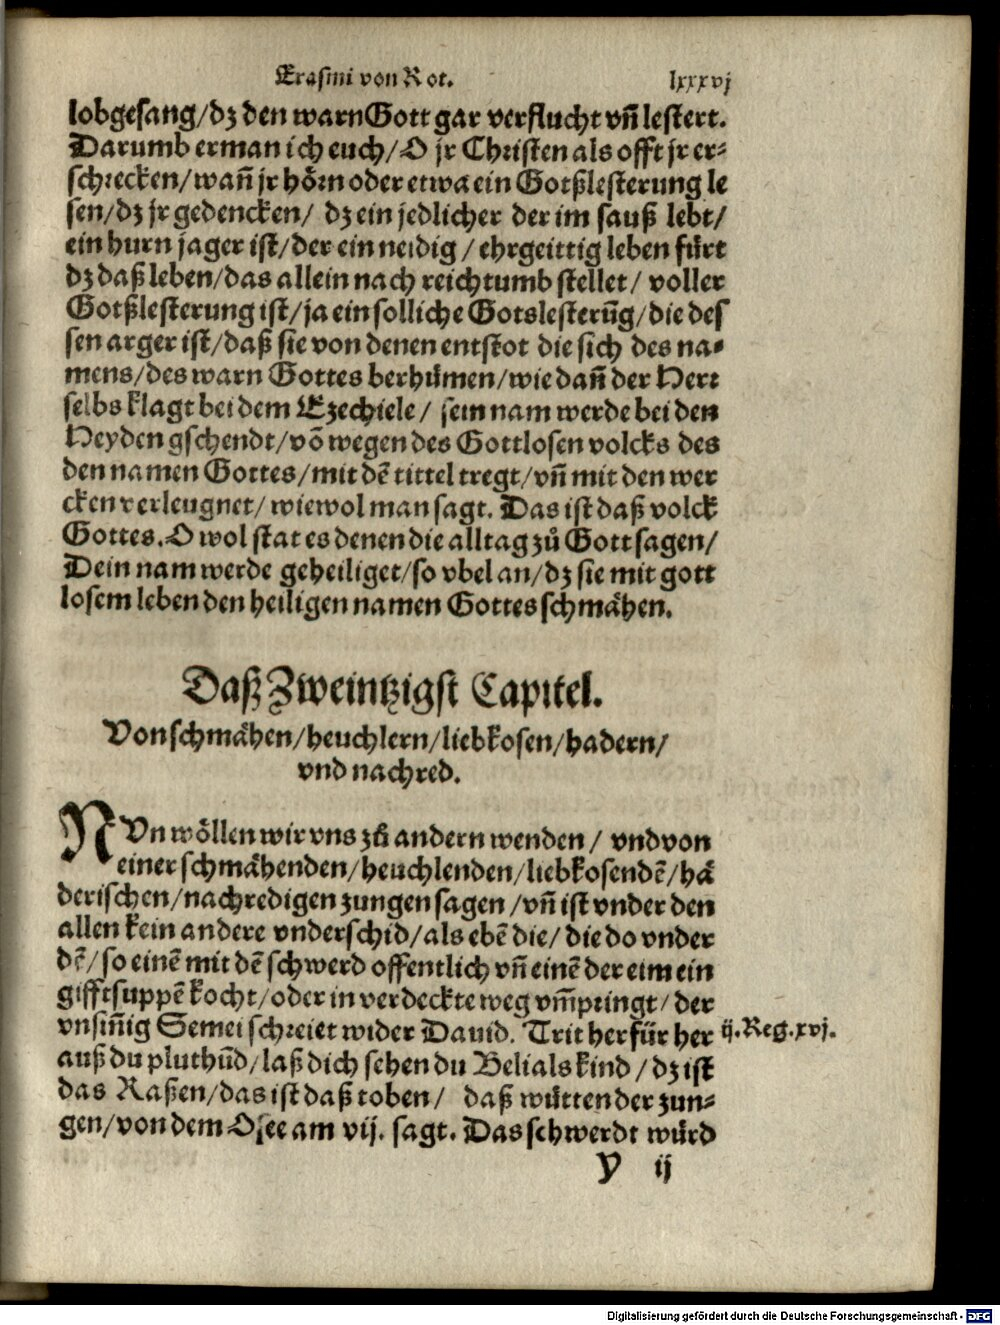 Erasmi von Rot. lxxxvj
lobgesang/dz den warn Gott gar verflucht vñ lestert.
Darumb erman ich euch/O jr Christen als offt jr er-
schrecken/wañ jr hörn oder etwa ein Gotßlesterung le
sen/dz jr gedencken/ dz ein jedlicher der im sauß lebt/
ein hurn jager ist/der ein neidig/ ehrgeittig leben fürt
dz daß leben/das allein nach reichtumb stellet/ voller
Gotßlesterung ist/ja ein solliche Gotslesterũg/die des
sen arger ist/daß sie von denen entstot die sich des na-
mens/des warn Gottes berhümen/wie dañ der Herr
selbs klagt bei dem Ezechiele/ sein nam werde bei den
Heyden gschendt/võ wegen des Gottlosen volcks des
den namen Gottes/mit dẽ tittel tregt/vñ mit den wer
cken verleugnet/ wiewol man sagt. Das ist daß volck
Gottes. O wol stat es denen die alltag zů Gott sagen/
Dein nam werde geheiliget/so vbel an/dz sie mit gott
losem leben den heiligen namen Gottes schmähen.
Daß Zweintzigst Capitel.
Von schmähen/heuchlern/liebkosen/hadern/
vnd nachred.
NVn wöllen wir vns zů andern wenden/ vnd von
einer schmähenden/heuchlenden/liebkosendẽ/hä
derischen/nachredigen zungen sagen/vñ ist vnder den
allen kein andere vnderschid/als ebẽ die/die do vnder
dẽ/so einẽ mit dẽ schwerd offentlich vñ einẽ der eim ein
gifftsuppẽ kocht/oder in verdeckte weg vm̃pringt/der
vnsiñig Semei schreiet wider Dauid. Trit herfür her
auß du pluthũd/laß dich sehen du Belials kind/dz ist
das Raßen/das ist daß toben/ daß wütten der zun-
gen/von dem Osee am vij. sagt. Das schwerdt würd
ij. Reg. xvj.
Y ij
Digitalisierung gefördert durch die Deutsche Forschungsgemeinschaft - DFG